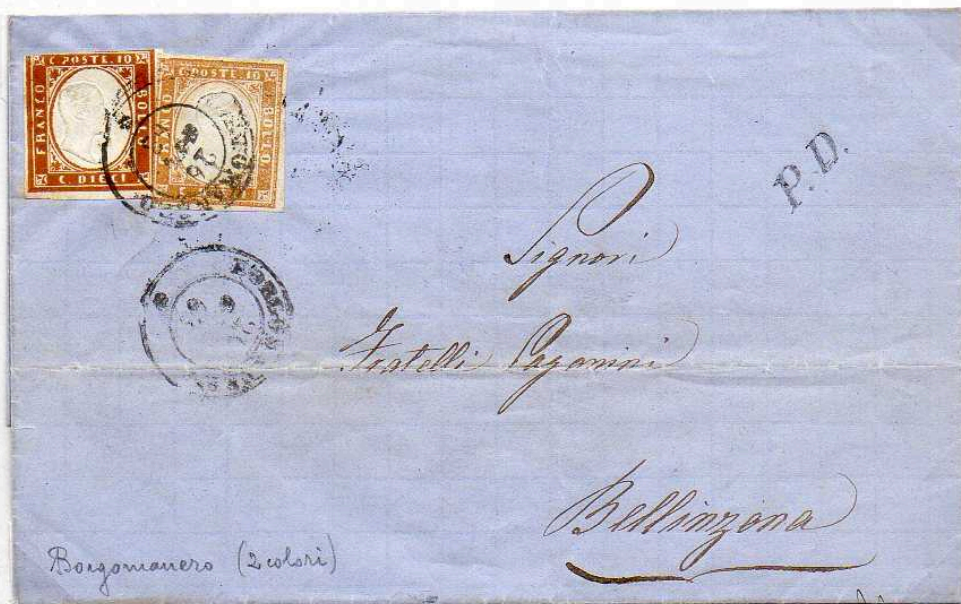 C. POSTE 10
FRANCO
BOLLO
C. DIECI
C. POSTE 10
FRANCO
BOLLO
P.D.
Signori
Fratelli Paganini
Bellinzona
Borgomanero (2 colori)